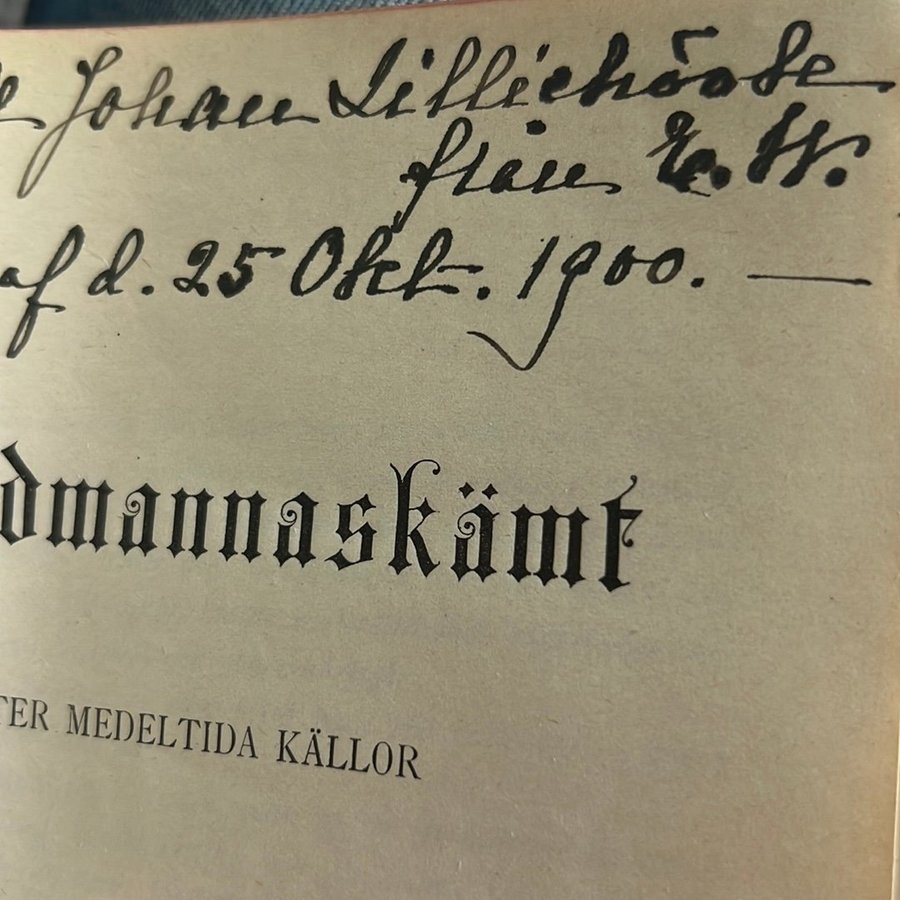 Johan Lilliehöök
från E. W.
af d. 25 Okt. 1900. —
dmannaskämt
TER MEDELTIDA KÄLLOR